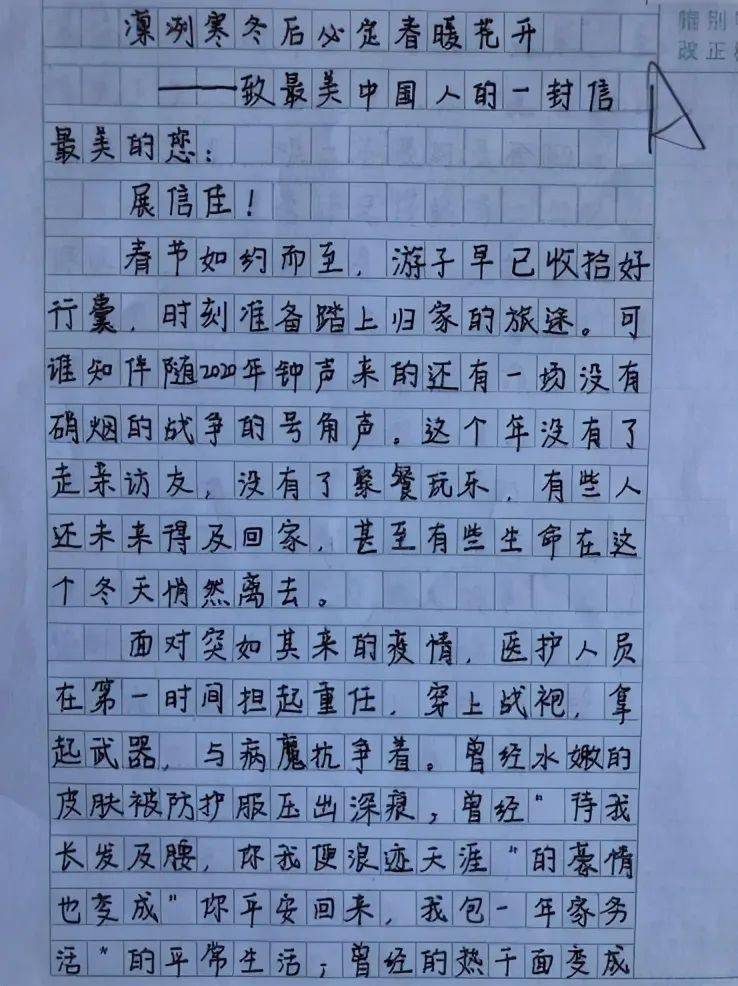 凛冽寒冬后必定春暖花开
——致最美中国人的一封信
最美的您：
展信佳！
春节如约而至，游子早已收拾好
行囊，时刻准备踏上归家的旅途。可
谁知伴随2020年钟声来的还有一场没有
硝烟的战争的号角声。这个年没有了
走亲访友，没有了聚餐玩乐，有些人
还未来得及回家，甚至有些生命在这
个冬天悄然离去。
面对突如其来的疫情，医护人员
在第一时间担起重任，穿上战袍，拿
起武器，与病魔抗争着。曾经水嫩的
皮肤被防护服压出深痕；曾经“待我
长发及腰，你我便浪迹天涯”的豪情
也变成“你平安回来，我包一年家务
活”的平常生活；曾经的热干面变成
改正